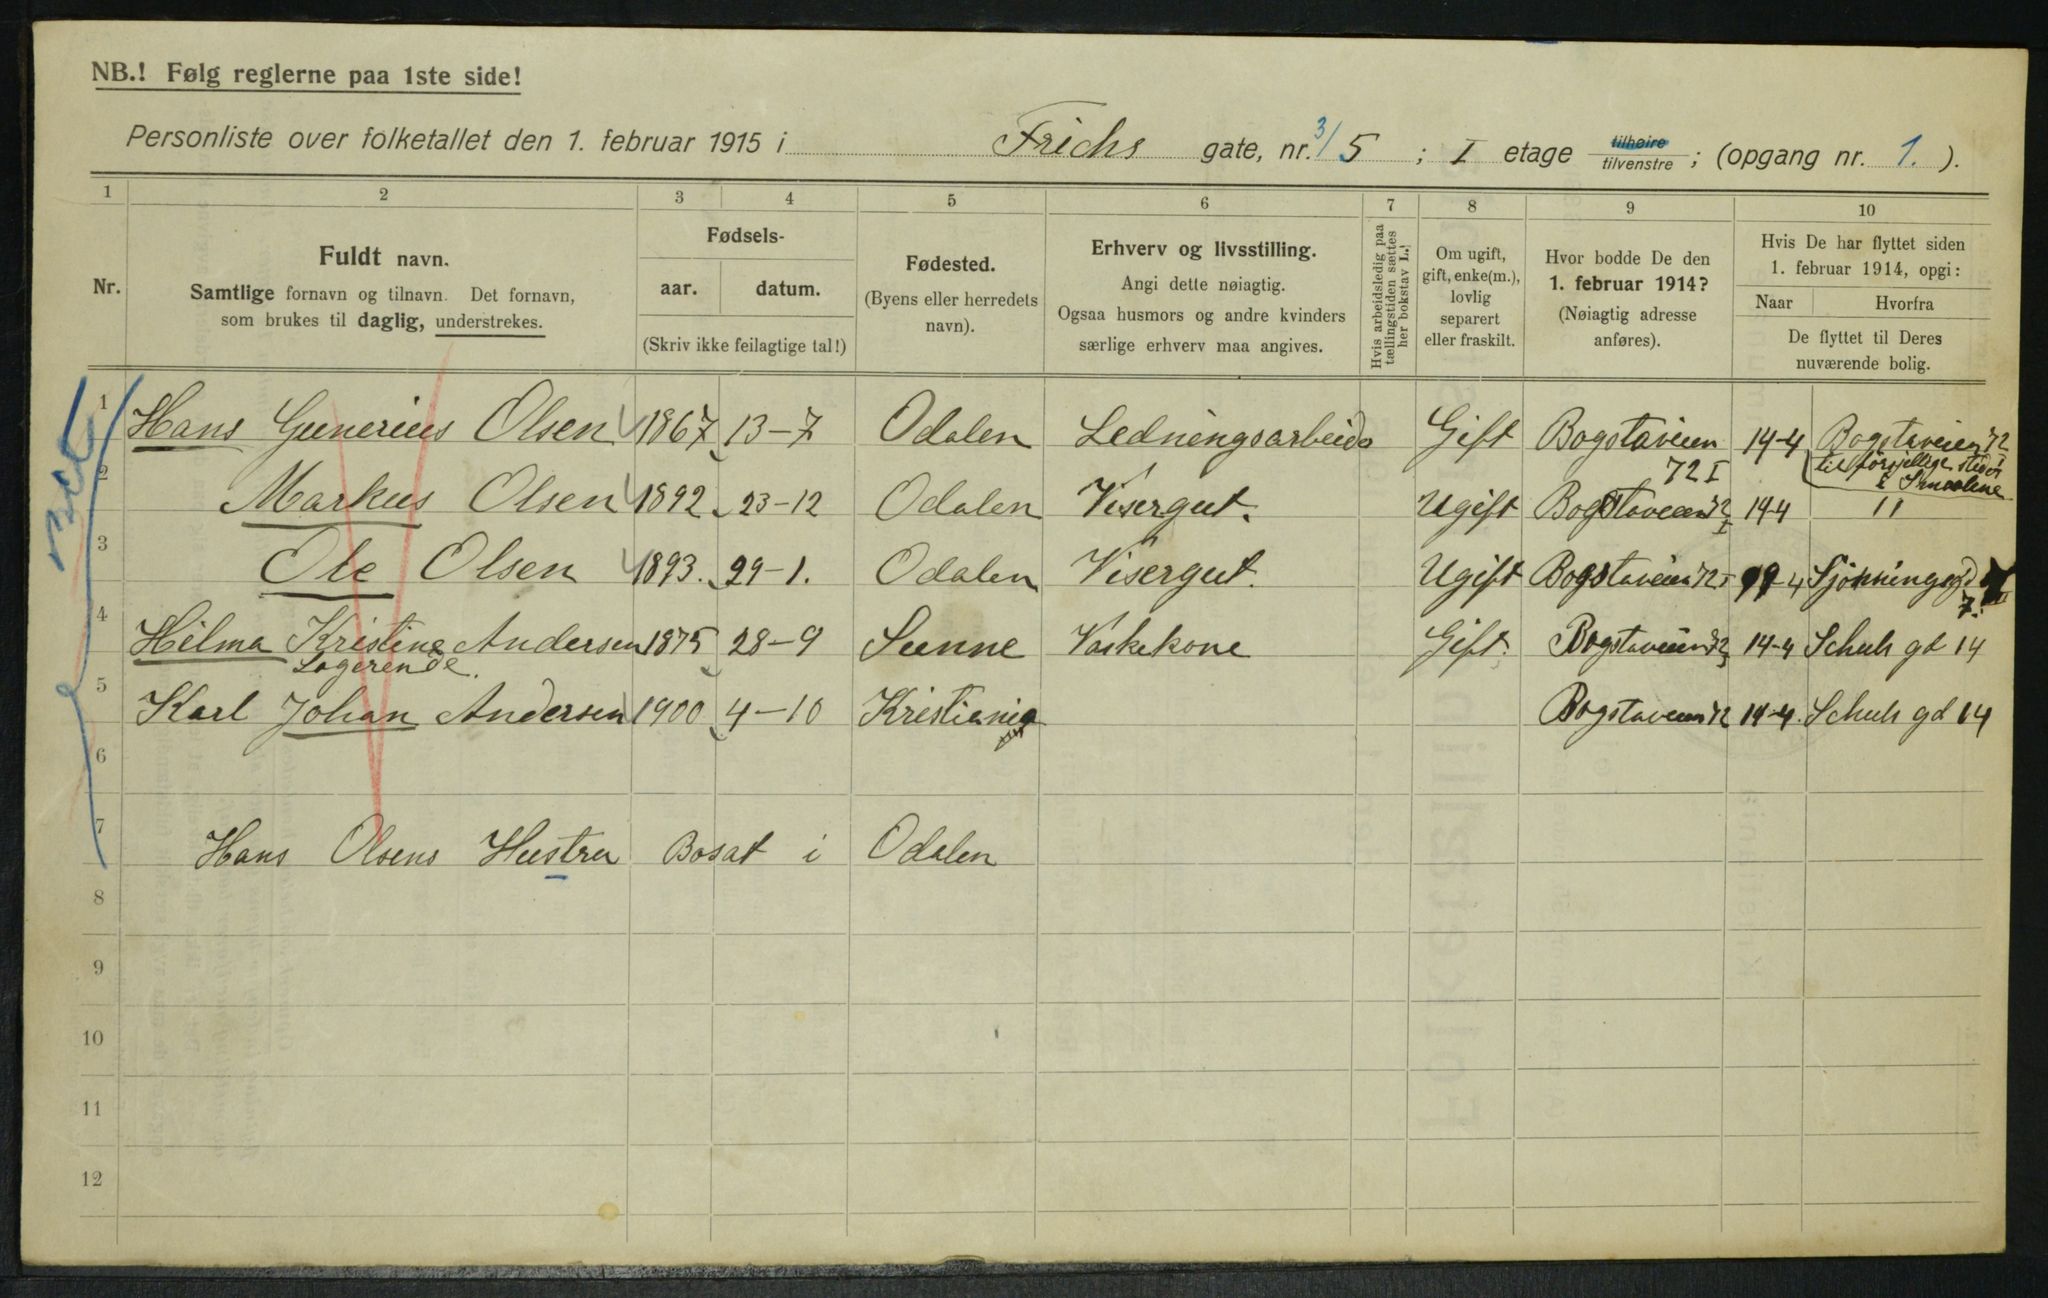 NB.! Følg reglerne paa 1ste side!
Personliste over folketallet den 1. februar 1915 i Frichs gate, nr. 3/5 ; I etage tilhøire tilvenstre ; (opgang nr. 1. ).
1 2 3 4 5 6 7 8 9 10
Nr.
Fuldt navn.
Samtlige fornavn og tilnavn. Det fornavn,
som brukes til daglig, understrekes.
Fødsels-
aar. datum.
(Skriv ikke feilagtige tal!)
Fødested.
(Byens eller herredets
navn).
Erhverv og livsstilling.
Angi dette nøiagtig.
Ogsaa husmors og andre kvinders
særlige erhverv maa angives.
Hvis arbeidsledig paa
tællingstiden sættes
her bokstav L.!
Om ugift,
gift, enke(m.),
lovlig
separert
eller fraskilt.
Hvor bodde De den
1. februar 1914?
(Nøiagtig adresse
anføres).
Hvis De har flyttet siden
1. februar 1914, opgi:
Naar Hvorfra
De flyttet til Deres
nuværende bolig.
1 Hans Gunerius Olsen 1867 13-7 Odalen Ledningsarbeide Gift Bogstaveien 72 I 14-4 Bogstaveien 72 I
til forsjellige steder
2 Markus Olsen 1892 23-12 Odalen Visergut. Ugift Bogstaveien 72 I 14-4 "
3 Ole Olsen 1893. 29-1. Odalen Visergut. Ugift Bogstaveien 72 I 19-4
4 Hilma Kristine Andersen 1875 28-9 Sunne Vaskekone Gift. Bogstaveien 72 14-4 Schuls gd 14
Logerende.
5 Karl Johan Andersen 1900 4-10 Kristiania Bogstaveien 72 14-4. Schuls gd 14
6
7 Hans Olsens Hustru Bosat i Odalen
8
9
10
11
12